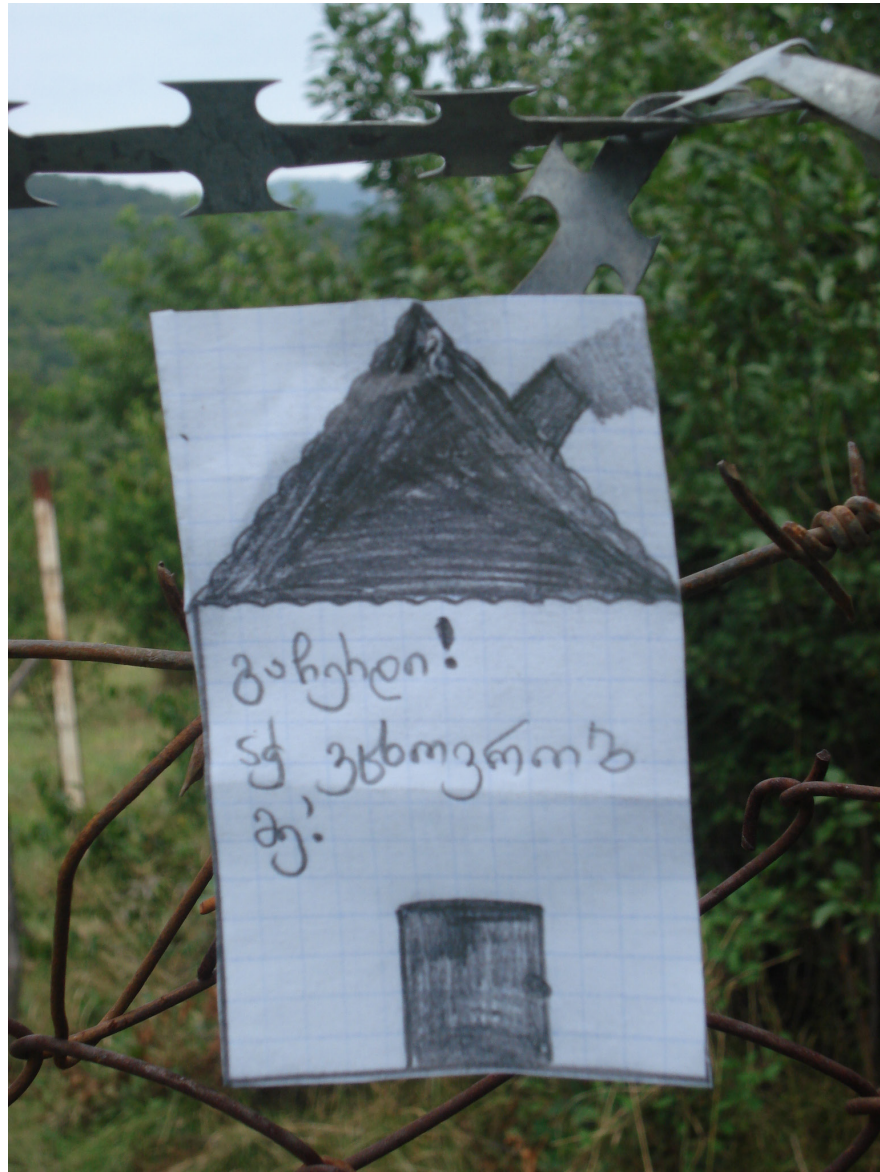 გაჩერდი!
აქ ვცხოვრობ
მე!